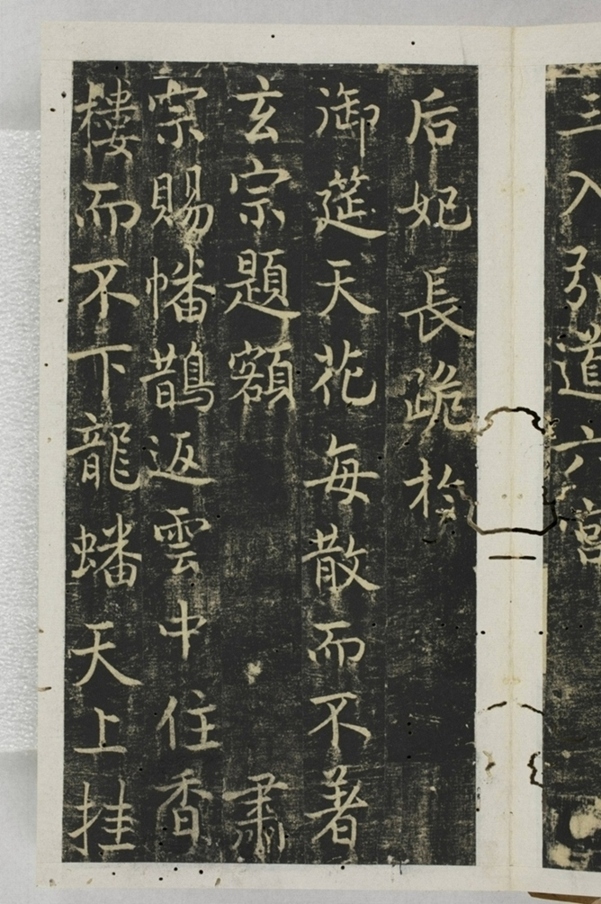 三入引道六宮
后妃長跪於
御筵天花每散而不著
玄宗題額 肅
宗賜幡鵲返雲中住香
樓而不下龍蟠天上挂